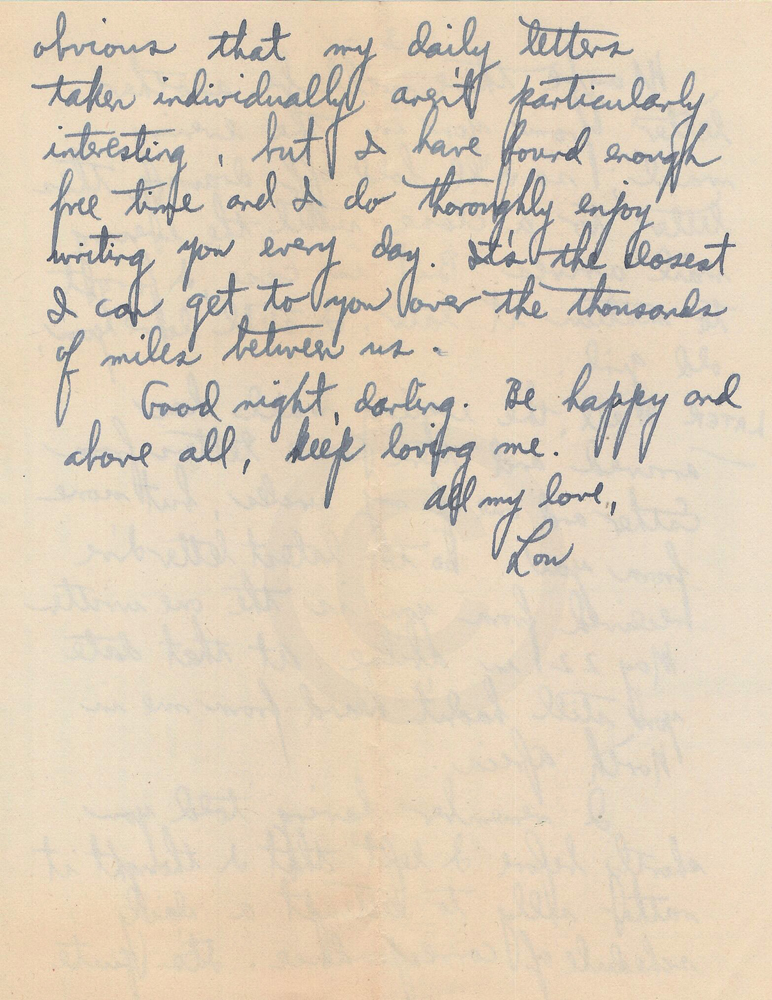 obvious that my daily letters
taken individually aren't particularly
interesting, but I have found enough
free time and I do thoroughly enjoy
writing you every day. It's the closest
I can get to you over the thousands
of miles between us.
Good night, darling. Be happy and
above all, keep loving me.
All my love,
Lou